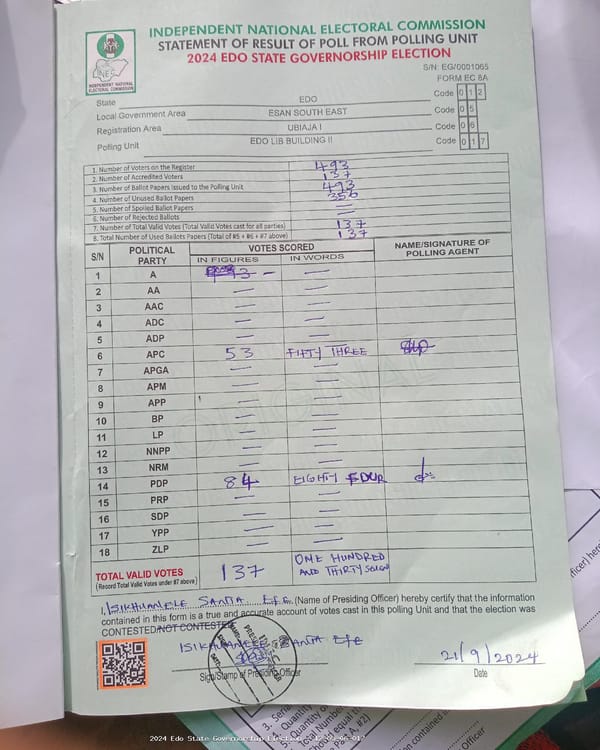 INDEPENDENT NATIONAL ELECTORAL COMMISSION
STATEMENT OF RESULT OF POLL FROM POLLING UNIT
2024 EDO STATE GOVERNORSHIP ELECTION
INDEPENDENT NATIONAL ELECTORAL COMMISSION
S/N: EG/0001065
FORM EC 8A
State EDO Code 0 1 2
Local Government Area ESAN SOUTH EAST Code 0 5
Registration Area UBIAJA I Code 0 6
Polling Unit EDO LIB BUILDING II Code 0 1 7
1. Number of Voters on the Register 493
2. Number of Accredited Voters 137
3. Number of Ballot Papers issued to the Polling Unit 493
4. Number of Unused Ballot Papers 356
5. Number of Spoiled Ballot Papers —
6. Number of Rejected Ballots —
7. Number of Total Valid Votes (Total Valid Votes cast for all parties) 137
8. Total Number of Used Ballots Papers (Total of #5 + #6 + #7 above) 137
S/N POLITICAL PARTY VOTES SCORED NAME/SIGNATURE OF POLLING AGENT
IN FIGURES IN WORDS
1 A — —
2 AA — —
3 AAC — —
4 ADC — —
5 ADP — —
6 APC 53 FIFTY THREE
7 APGA — —
8 APM — —
9 APP — —
10 BP — —
11 LP — —
12 NNPP — —
13 NRM — —
14 PDP 84 EIGHTY FOUR
15 PRP — —
16 SDP — —
17 YPP — —
18 ZLP — —
TOTAL VALID VOTES 137 ONE HUNDRED
(Record Total Valid Votes under #7 above) AND THIRTY SEVEN
I, ISIKHUEMELE SANTA Efe (Name of Presiding Officer) hereby certify that the information
contained in this form is a true and accurate account of votes cast in this polling Unit and that the election was
CONTESTED/NOT CONTESTED
ISIKHUEMELE SANTA Efe
21/9/2024
Sign/Stamp of Presiding Officer
Date
2024 Edo State Governorship Election